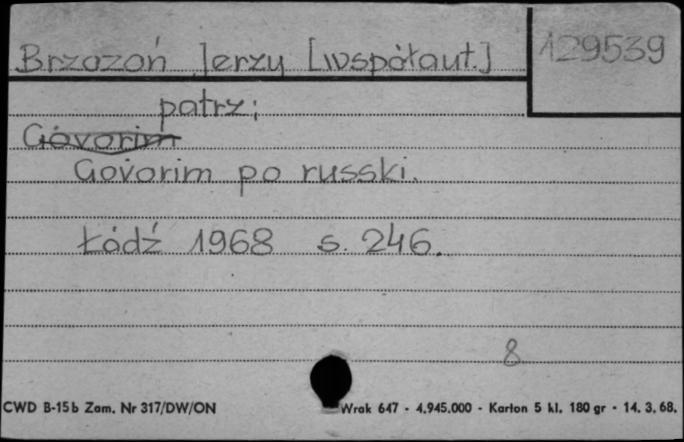 Brzozoń Jerzy [współaut.] 129539
patrz:
Govorim
Govorim po russki.
Łódź 1968 s. 246.
8
CWD B-15b Zam. Nr 317/DW/ON Wrak 647 - 4.945.000 - Karton 5 kl. 180 gr - 14. 3. 68.